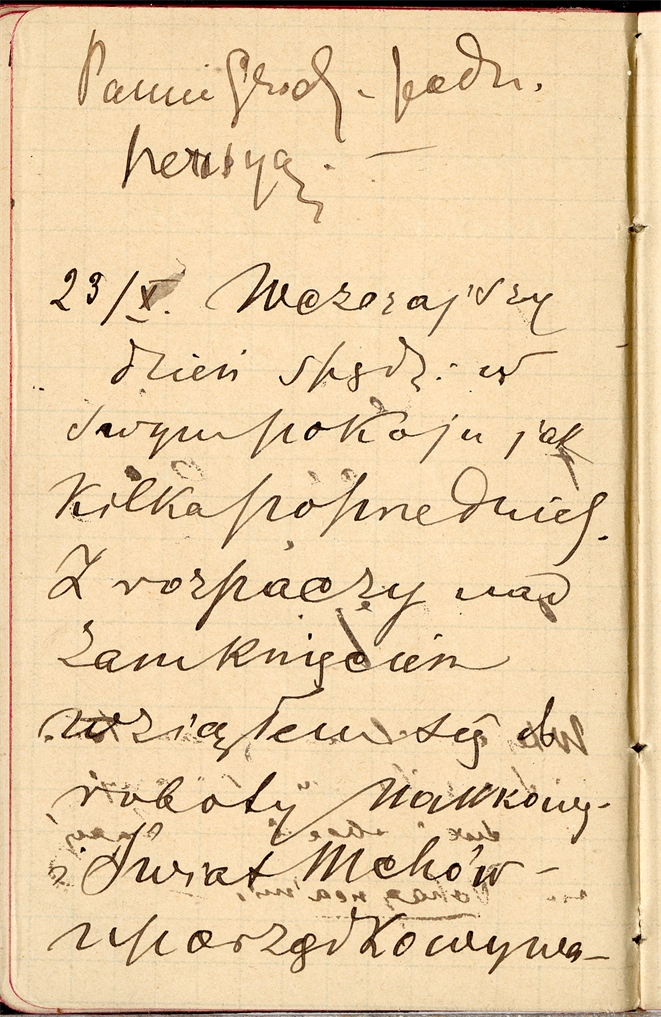 Panni Grodz. - podr.
hersyą. —
23/X. Wczorajszy
dzień spędz: w
swym pokoju jak
kilka poprzednich.
Z rozpaczy nad
zamknięciem
wziąłem się do
roboty naukowy-
Świat Mchów -
uporządkowywa-